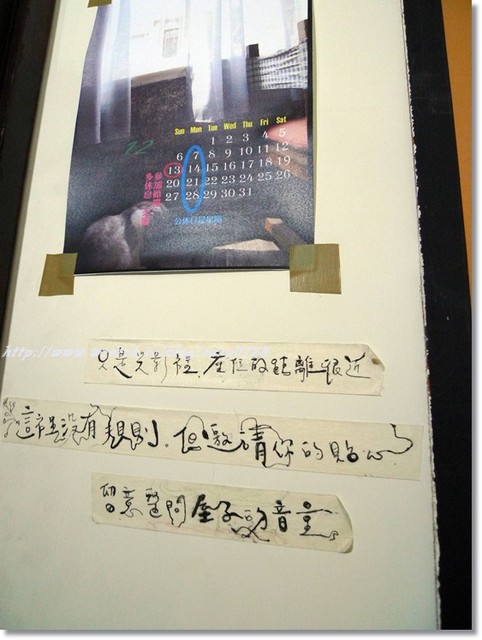 12
Sun Mon Tue Wed Thu Fri Sat
1 2 3 4 5
6 7 8 9 10 11 12
13 14 15 16 17 18 19
20 21 22 23 24 25 26
27 28 29 30 31
公休日是星期
只是光影裡,座位的距離很近
這裡沒有規則.但邀請你的貼心
留意整間屋子的音量。